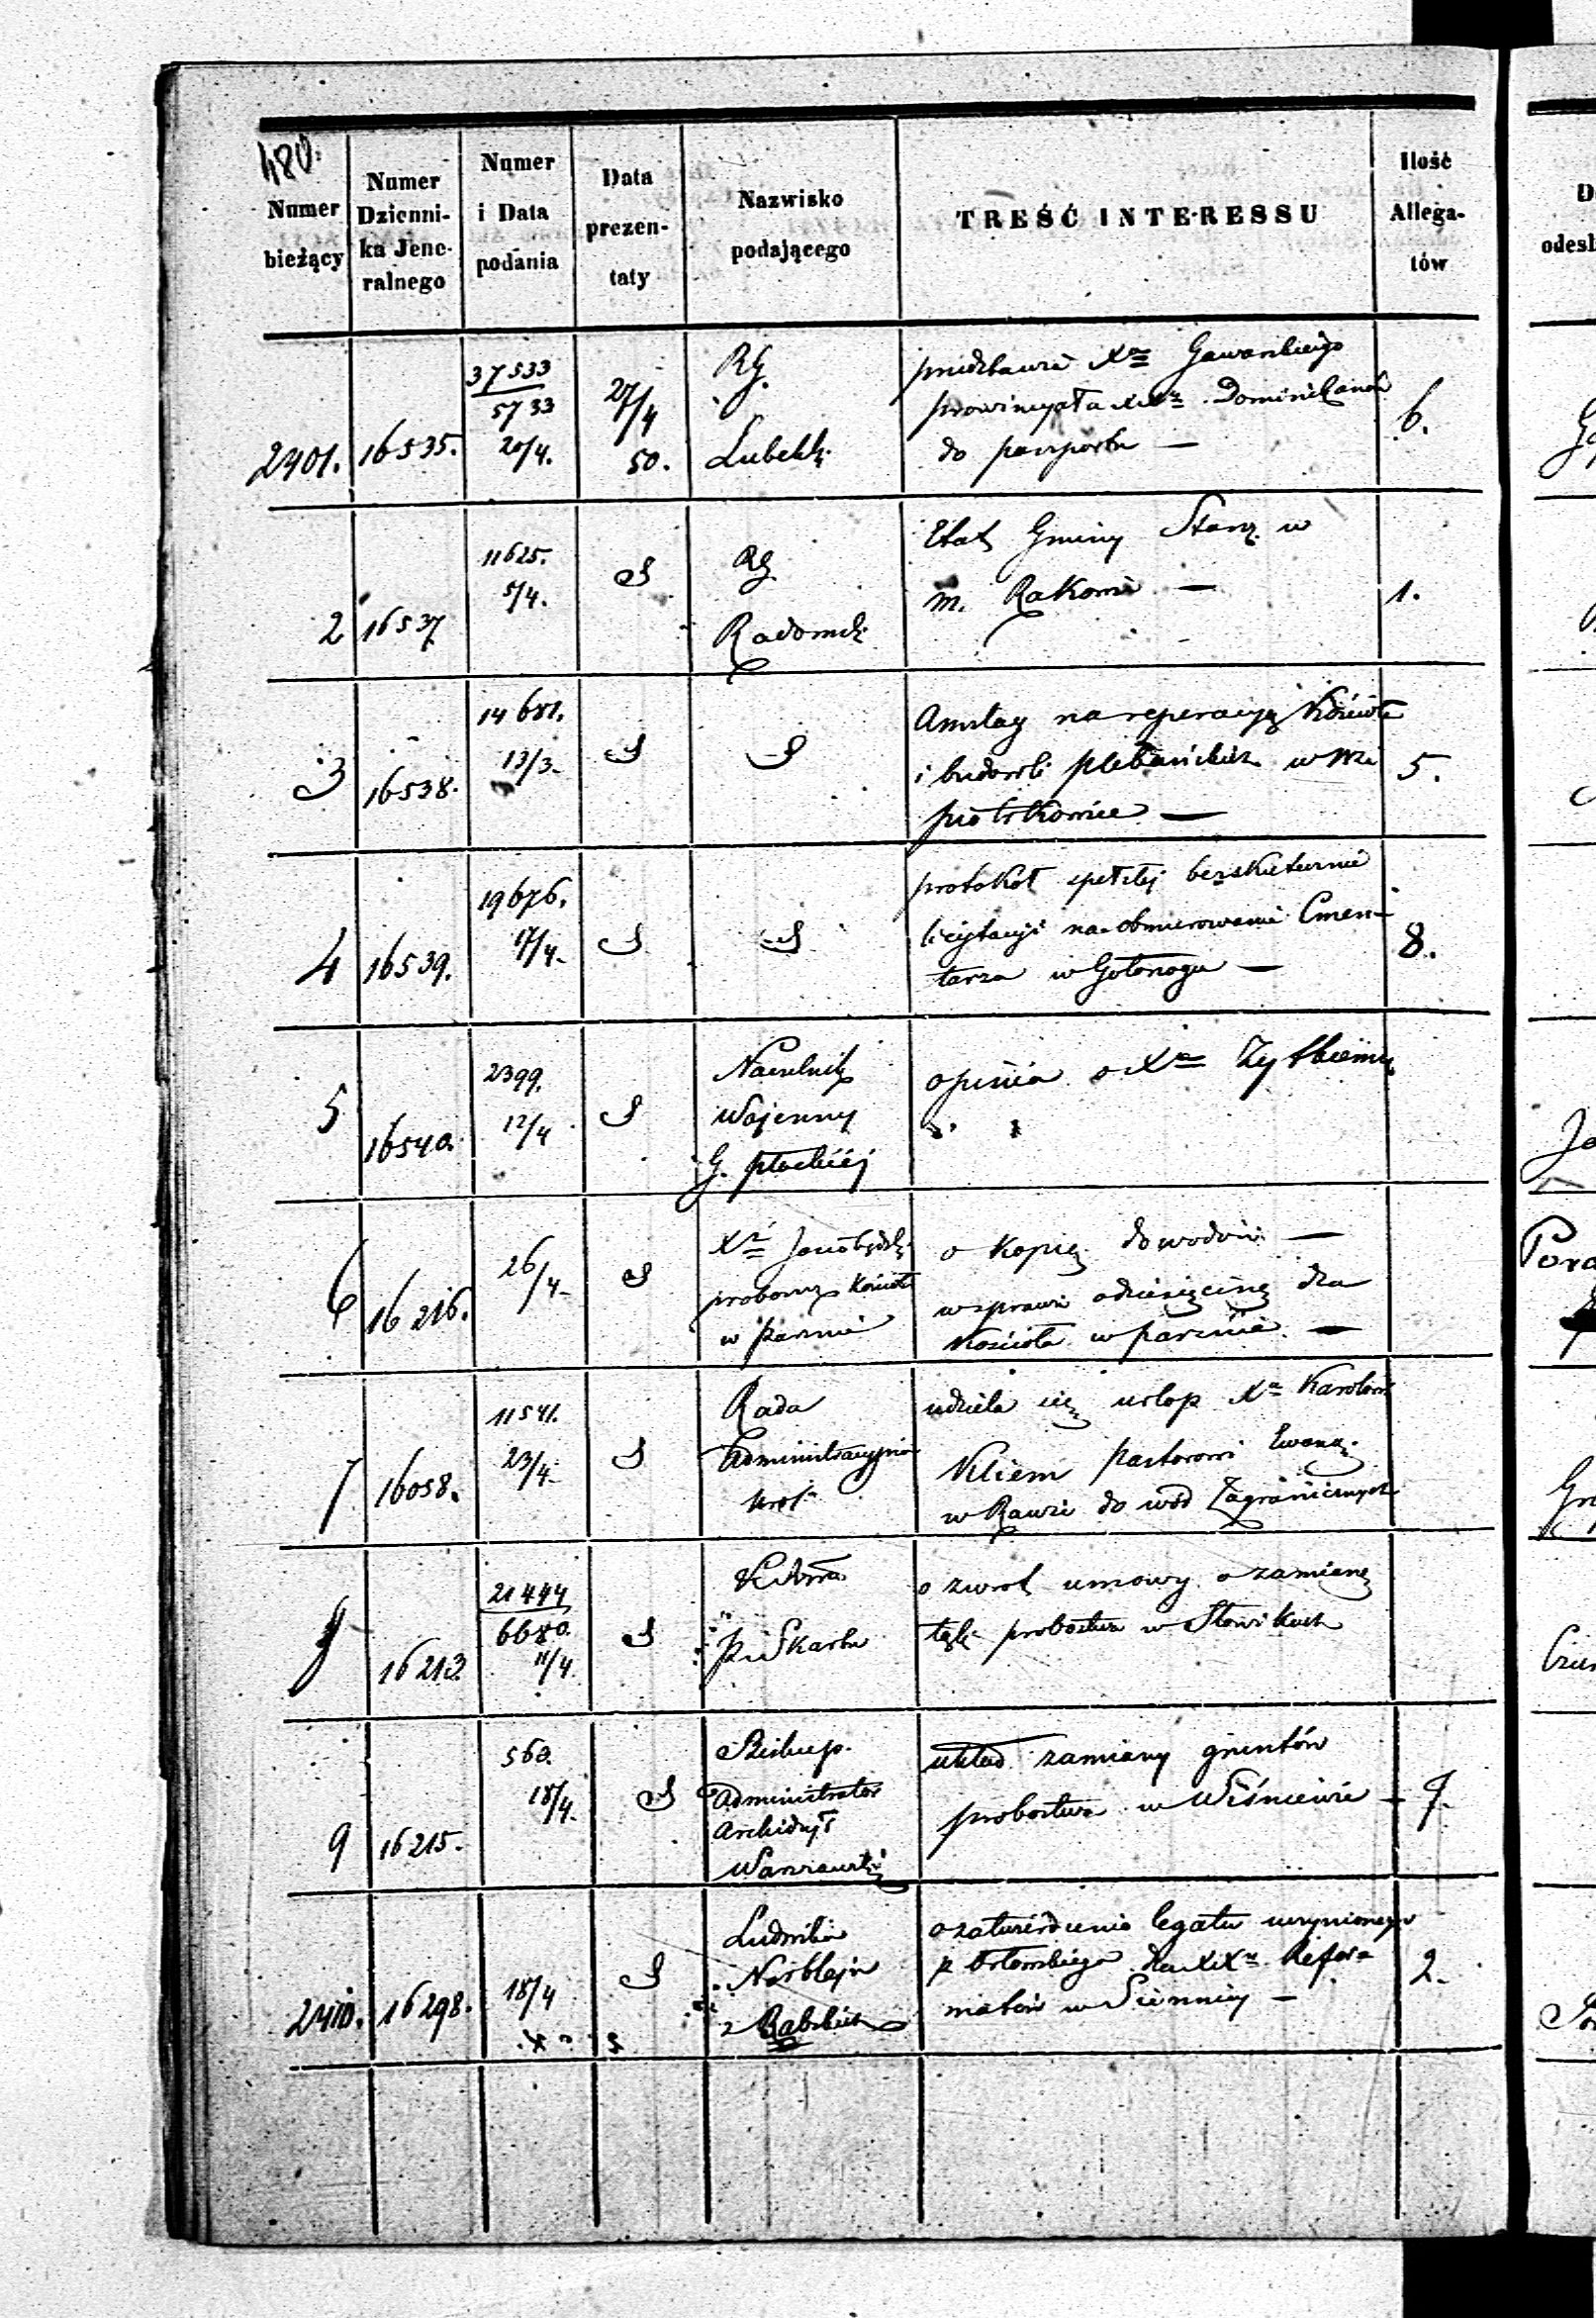 480.
Numer bieżący
Numer Dzienni- ka Jene- ralnego
Numer i Data podania
Data prezen- taty
Nazwisko podającego
TREŚĆ INTERESSU
Ilość Allega- tów
2401. 16535.
37533
5733
20/4.
27/4
50.
RG.
Lubelsk.
przedstawia Xa Gawarskiego
prowincyała XX Dominikanów
do paszportu —
6.
2 16537
11625.
5/4.
RG
Radomsk.
Etat Gminy Starz. w
m. Rakowie —
1.
3 16538.
14681.
13/3.
Anszlag na reperacyą Kościoła
i budowli plebańskich w wsi
piotrkowice —
5.
4 16539.
19676.
17/4.
protokół spełzłej bezskutecznie
licytacyi na obmurowanie Cmen-
tarza w Gołonogu —
8.
5 16540.
2399.
12/4
Naczelnik
Wojenny
G. płockiej
opinia o Xu
6 16216.
26/4
proboszcz Kościoła
w parznie
o kopię dowodów —
w sprawie o dziesięcinę dla
Kościoła w parznie. —
7 16058.
11541.
23/4.
Rada
Administracyjna
Król.
udziela się urlop Xu Karolowi
Kliem pastorowi Ewang.
w Rawie do wód Zagranicznych
8 16213.
21444
6680.
11/4.
p. i Skarbu
o zwrot umowy o zamianę
łąki probostwa w Słowikach
9 16215.
560.
18/4.
Biskup.
Administrator
Archidyi
Warszawski
układ zamiany gruntów
probostwa w Wiśniewie —
7.
2410. 16298.
18/4
Ludwika
Norblejn
z Babskich
o zatwierdzenie legatu uczynionego
dla XX Refor-
matów w Siennicy —
2.